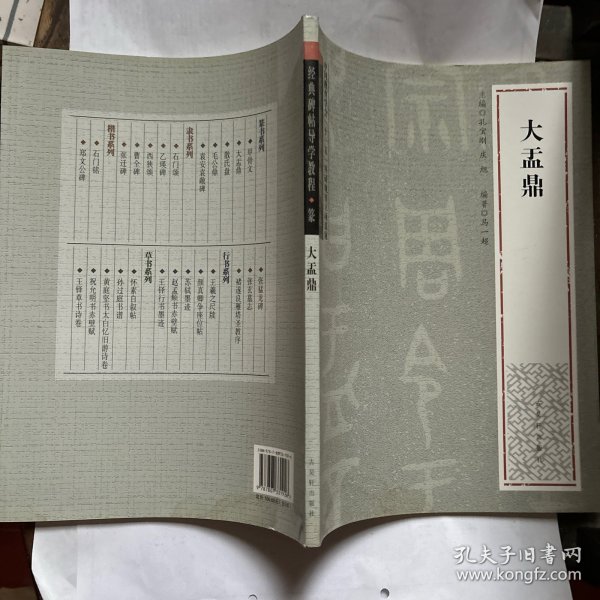 大盂鼎
编著◎马一超
古吴轩出版社
经典碑帖导学教程·篆
大盂鼎
篆书系列
甲骨文
大盂鼎
散氏盘
毛公鼎
袁安袁敞碑
隶书系列
石门颂
乙瑛碑
西狭颂
曹全碑
张迁碑
楷书系列
石门铭
郑文公碑
张猛龙碑
张玄墓志
褚遂良雁塔圣教序
行书系列
王羲之尺牍
颜真卿争座位帖
苏轼墨迹
赵孟頫书赤壁赋
王铎行书墨迹
草书系列
怀素自叙帖
孙过庭书谱
黄庭坚书太白忆旧游诗卷
祝允明书赤壁赋
王铎草书诗卷
古吴轩出版社
孔夫子旧书网
www.kongfz.com